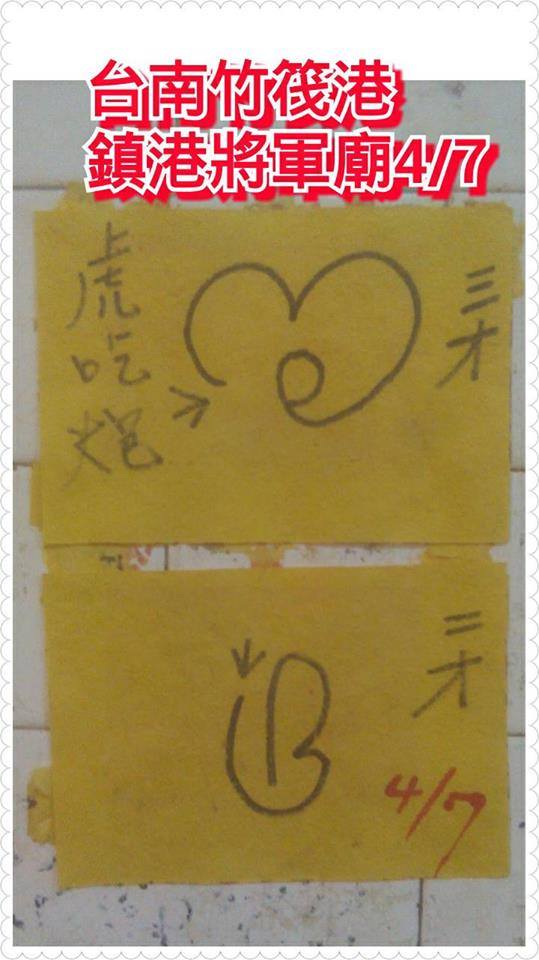 台南竹筏港
鎮港將軍廟4/7
虎吃炮
三才
二才
4/7